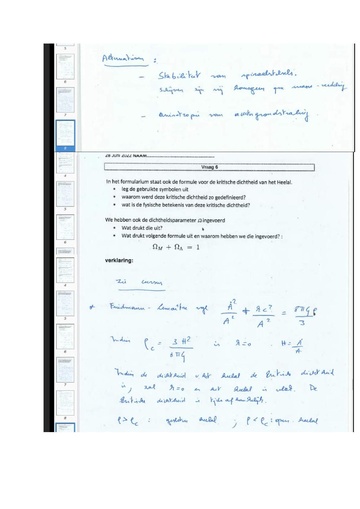 Alternatieven :
- Stabiliteit van spiraalstelsels.
- anisotropie van achtergrondstraling
28 JUN 2022 NAAM
Vraag 6
In het formularium staat ook de formule voor de kritische dichtheid van het Heelal.
• leg de gebruikte symbolen uit
• waarom werd deze kritische dichtheid zo gedefinieerd?
• wat is de fysische betekenis van deze kritische dichtheid?
We hebben ook de dichtheidsparameter zo ingevoerd
• Wat drukt die uit?
• Wat drukt volgende formule uit en waarom hebben we die ingevoerd? :
Ω_M + Ω_Λ = 1
verklaring:
Zie cursus
* Friedmann - Lemaître vgl
Indien ρ_c = 3H²/8πG is k=0 H = Ȧ/A
Indien de dichtheid v het heelal de kritische dichtheid
is, zal k=0 en het heelal is vlak. De
kritische dichtheid is tijdsafhankelijk.
ρ > ρ_c : gesloten heelal ; ρ < ρ_c : open heelal